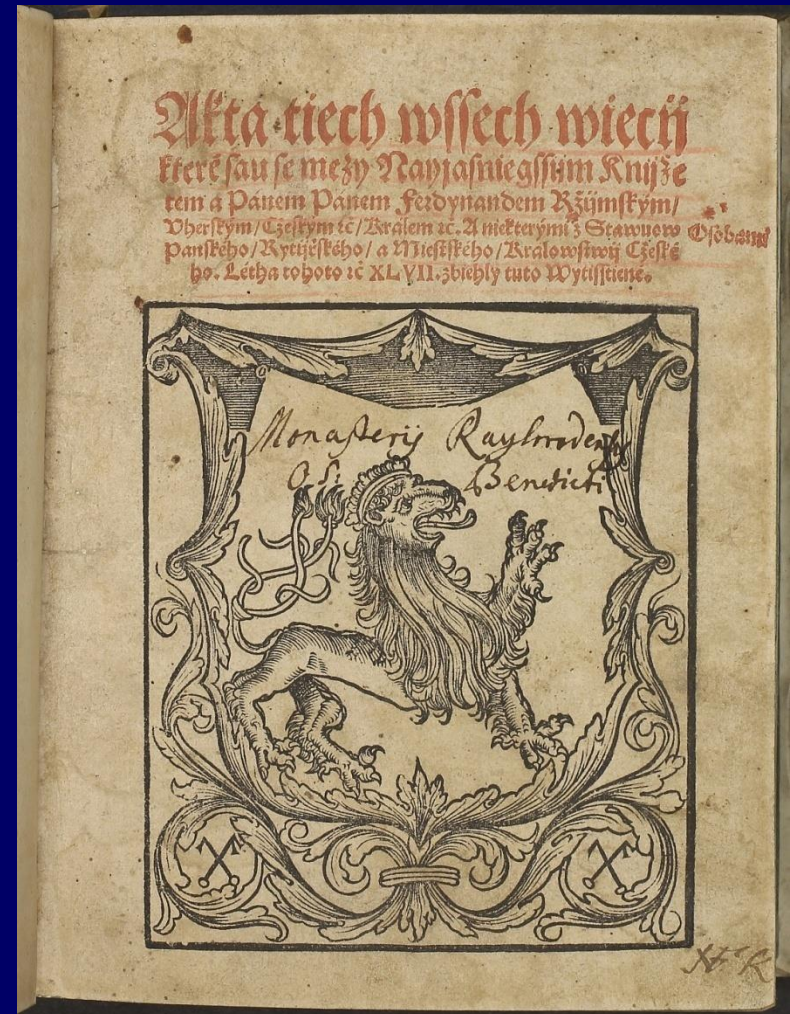 Akta tiech wssech wiecij
kterež sau se mezy Nayjasniegssim Knijže
tem a Pánem Pánem Ferdynandem Ržijmským/
Vherským/ Cžeským ꝛč/ Králem ꝛc. A niekterými z Stawuow Osobami
Panského/ Rytijřského/ a Miestského/ Kralowstwij Cžeské
ho. Létha tohoto ꝛč XLVII. zbiehly tuto Wytisstiené.
Monasterij Rayhradensis
O. S. Benedicti